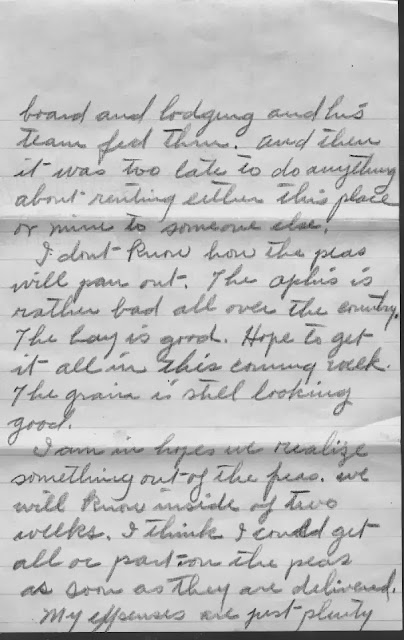 board and lodging and his
team fed thru. and then
it was too late to do anything
about renting either this place
or mine to someone else.
I dont know how the peas
will pan out. The aphis is
rather bad all over the country.
The hay is good. Hope to get
it all in this coming week.
The grain is still looking
good.
I am in hopes we realize
something out of the peas. we
will know inside of two
weeks. I think I could get
all or part on the peas
as soon as they are delivered.
My expenses are just plenty